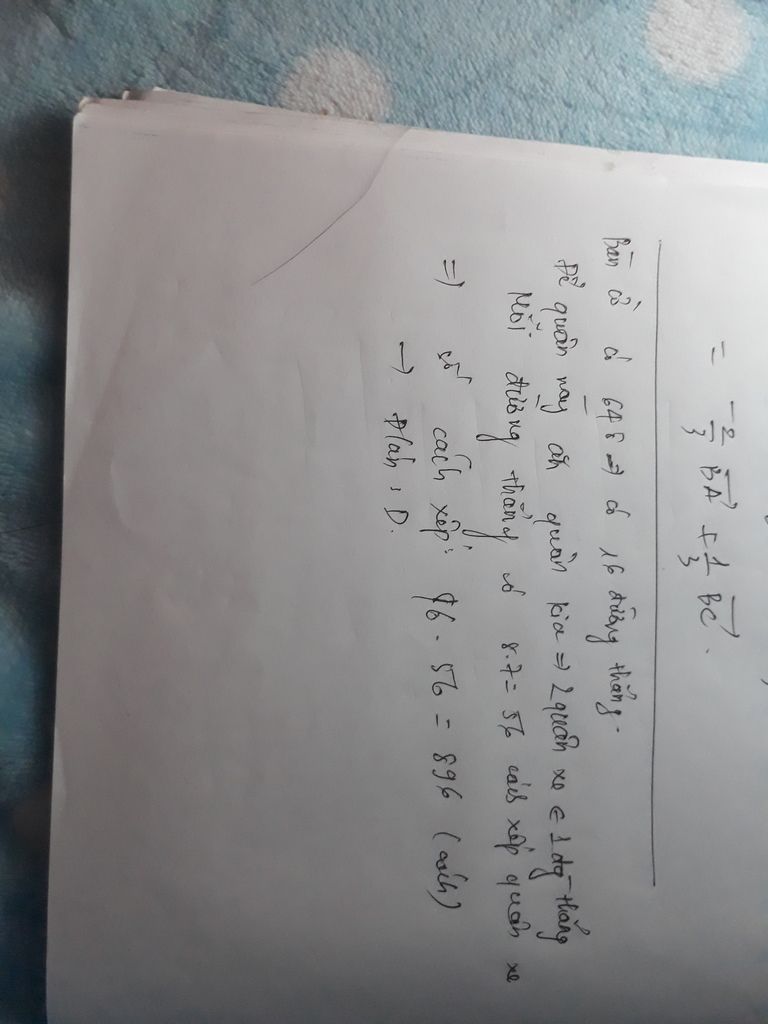 = -2/3 BA + 1/3 BC.
Bàn cờ có 64 ô => có 16 đường thẳng.
Để quân này ăn quân kia => 2 quân xe ∈ 1 đg thẳng
Mỗi đường thẳng có 8.7 = 56 cách xếp quân xe
=> số cách xếp: 16 . 56 = 896 (cách)
→ Đ/án: D.